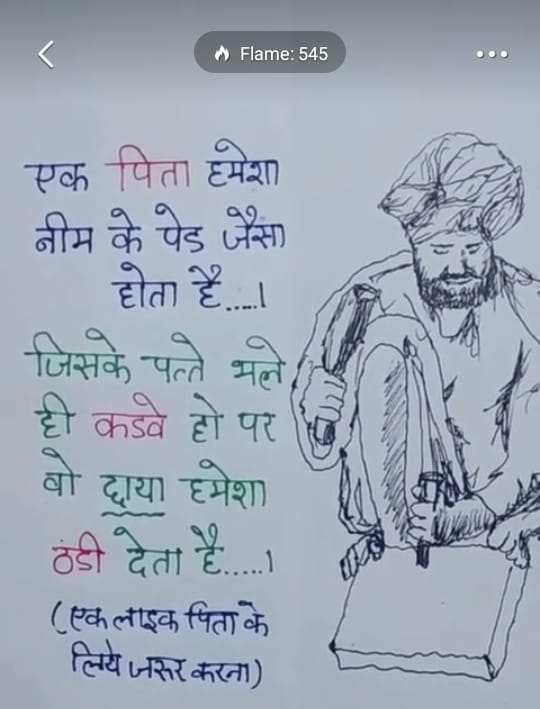 Flame: 545
एक पिता हमेशा
नीम के पेड जैसा
होता है.....।
जिसके पत्ते भले
ही कडवे हो पर
वो छाया हमेशा
ठंडी देता है.....।
(एक लाइक पिता के
लिये जरूर करना)